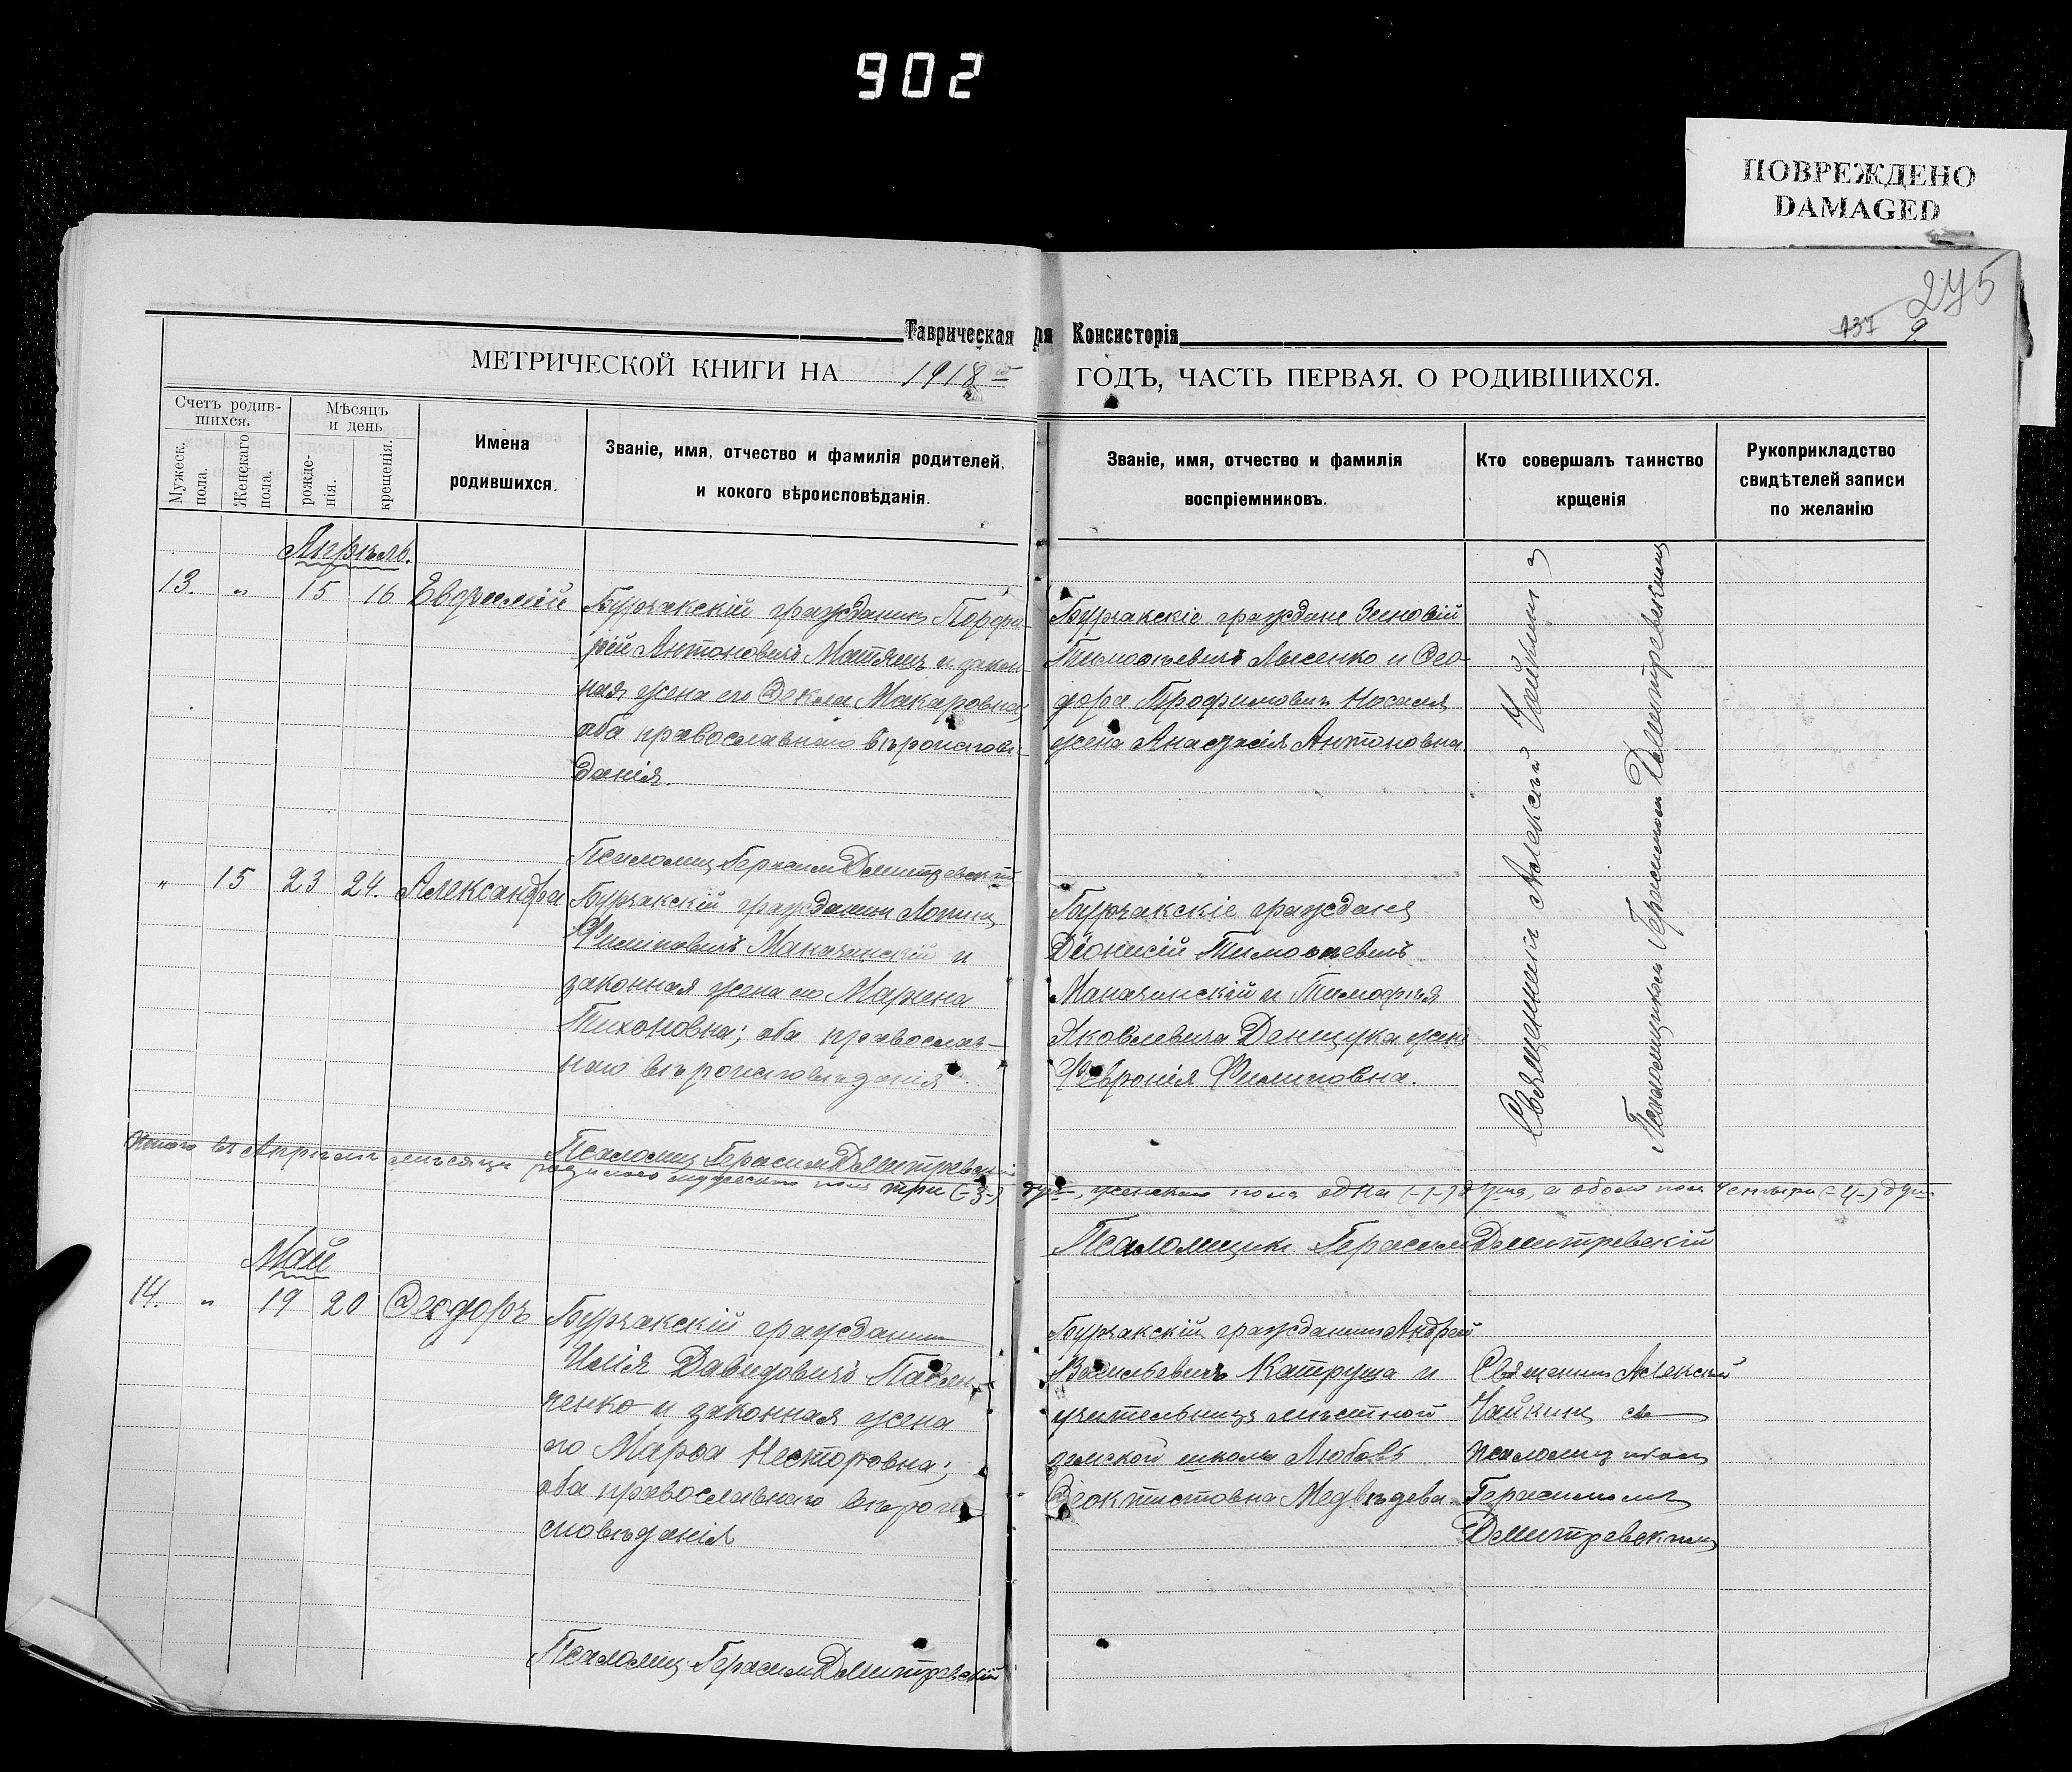 902
ПОВРЕЖДЕНО
DAMAGED
275
137 9.
Таврическая Консисторія
МЕТРИЧЕСКОЙ КНИГИ НА 1918 ГОДЪ, ЧАСТЬ ПЕРВАЯ. О РОДИВШИХСЯ.
Счетъ родив-
шихся.
Мужеск.
пола.
Женскаго
пола.
Мѣсяцъ
и день
рожде-
нія.
крещенія.
Имена
родившихся.
Званіе, имя, отчество и фамилія родителей,
и кокого вѣроисповѣданія.
Званіе, имя, отчество и фамилія
воспріемниковъ.
Кто совершалъ таинство
крщенія
Рукоприкладство
свидѣтелей записи
по желанію
Апрѣль.
13. " 15 16 Евфимій
Бурчакскій гражданинъ Порфи-
рій Антоновичъ Матяшъ и закон-
ная жена его Ѳекла Макаровна,
оба православнаго вѣроисповѣ-
данія.
Бурчакскіе граждане Зиновій
Тимоѳеевичъ Лысенко и Ѳео-
дора Трофимовича Носаля
жена Анастасія Антоновна
Псаломщ. Герасимъ Дмитревскій
" 15 23 24. Александра
Бурчакскій гражданинъ Логинъ
Филиповичъ Маначинскій и
законная жена его Марѳена
Тихоновна; оба православ-
наго вѣроисповѣданія.
Бурчакскіе граждане
Діонисій Тимоѳеевичъ
Маначинскій и Тимофея
Яковлевича Денщука жена
Февронія Филиповна.
Священникъ Алексѣй Чайкинъ съ
Псаломщикомъ Герасимомъ Дмитревскимъ
Псаломщ. Герасимъ Дмитревскій
Итого въ Апрѣлѣ мѣсяцѣ родилось мужескаго пола три (-3-) душ, женскаго пола одна (-1-) душа, а обоего пола четыре (-4-) душ
Псаломщикъ Герасимъ Дмитревскій
Май
14. " 19 20 Ѳеодоръ
Бурчакскій гражданинъ
Илія Давидовичъ Павли-
ченко и законная жена
его Марѳа Несторовна;
оба православнаго вѣрои-
сповѣданія
Бурчакскій гражданинъ Андрей
Васильевичъ Катруша и
учительница мѣстной
земской школы Любовь
Ѳеоктистовна Медвѣдева.
Священникъ Алексѣй
Чайкинъ съ
псаломщикомъ
Герасимомъ
Дмитревскимъ
Псаломщ. Герасимъ Дмитревскій